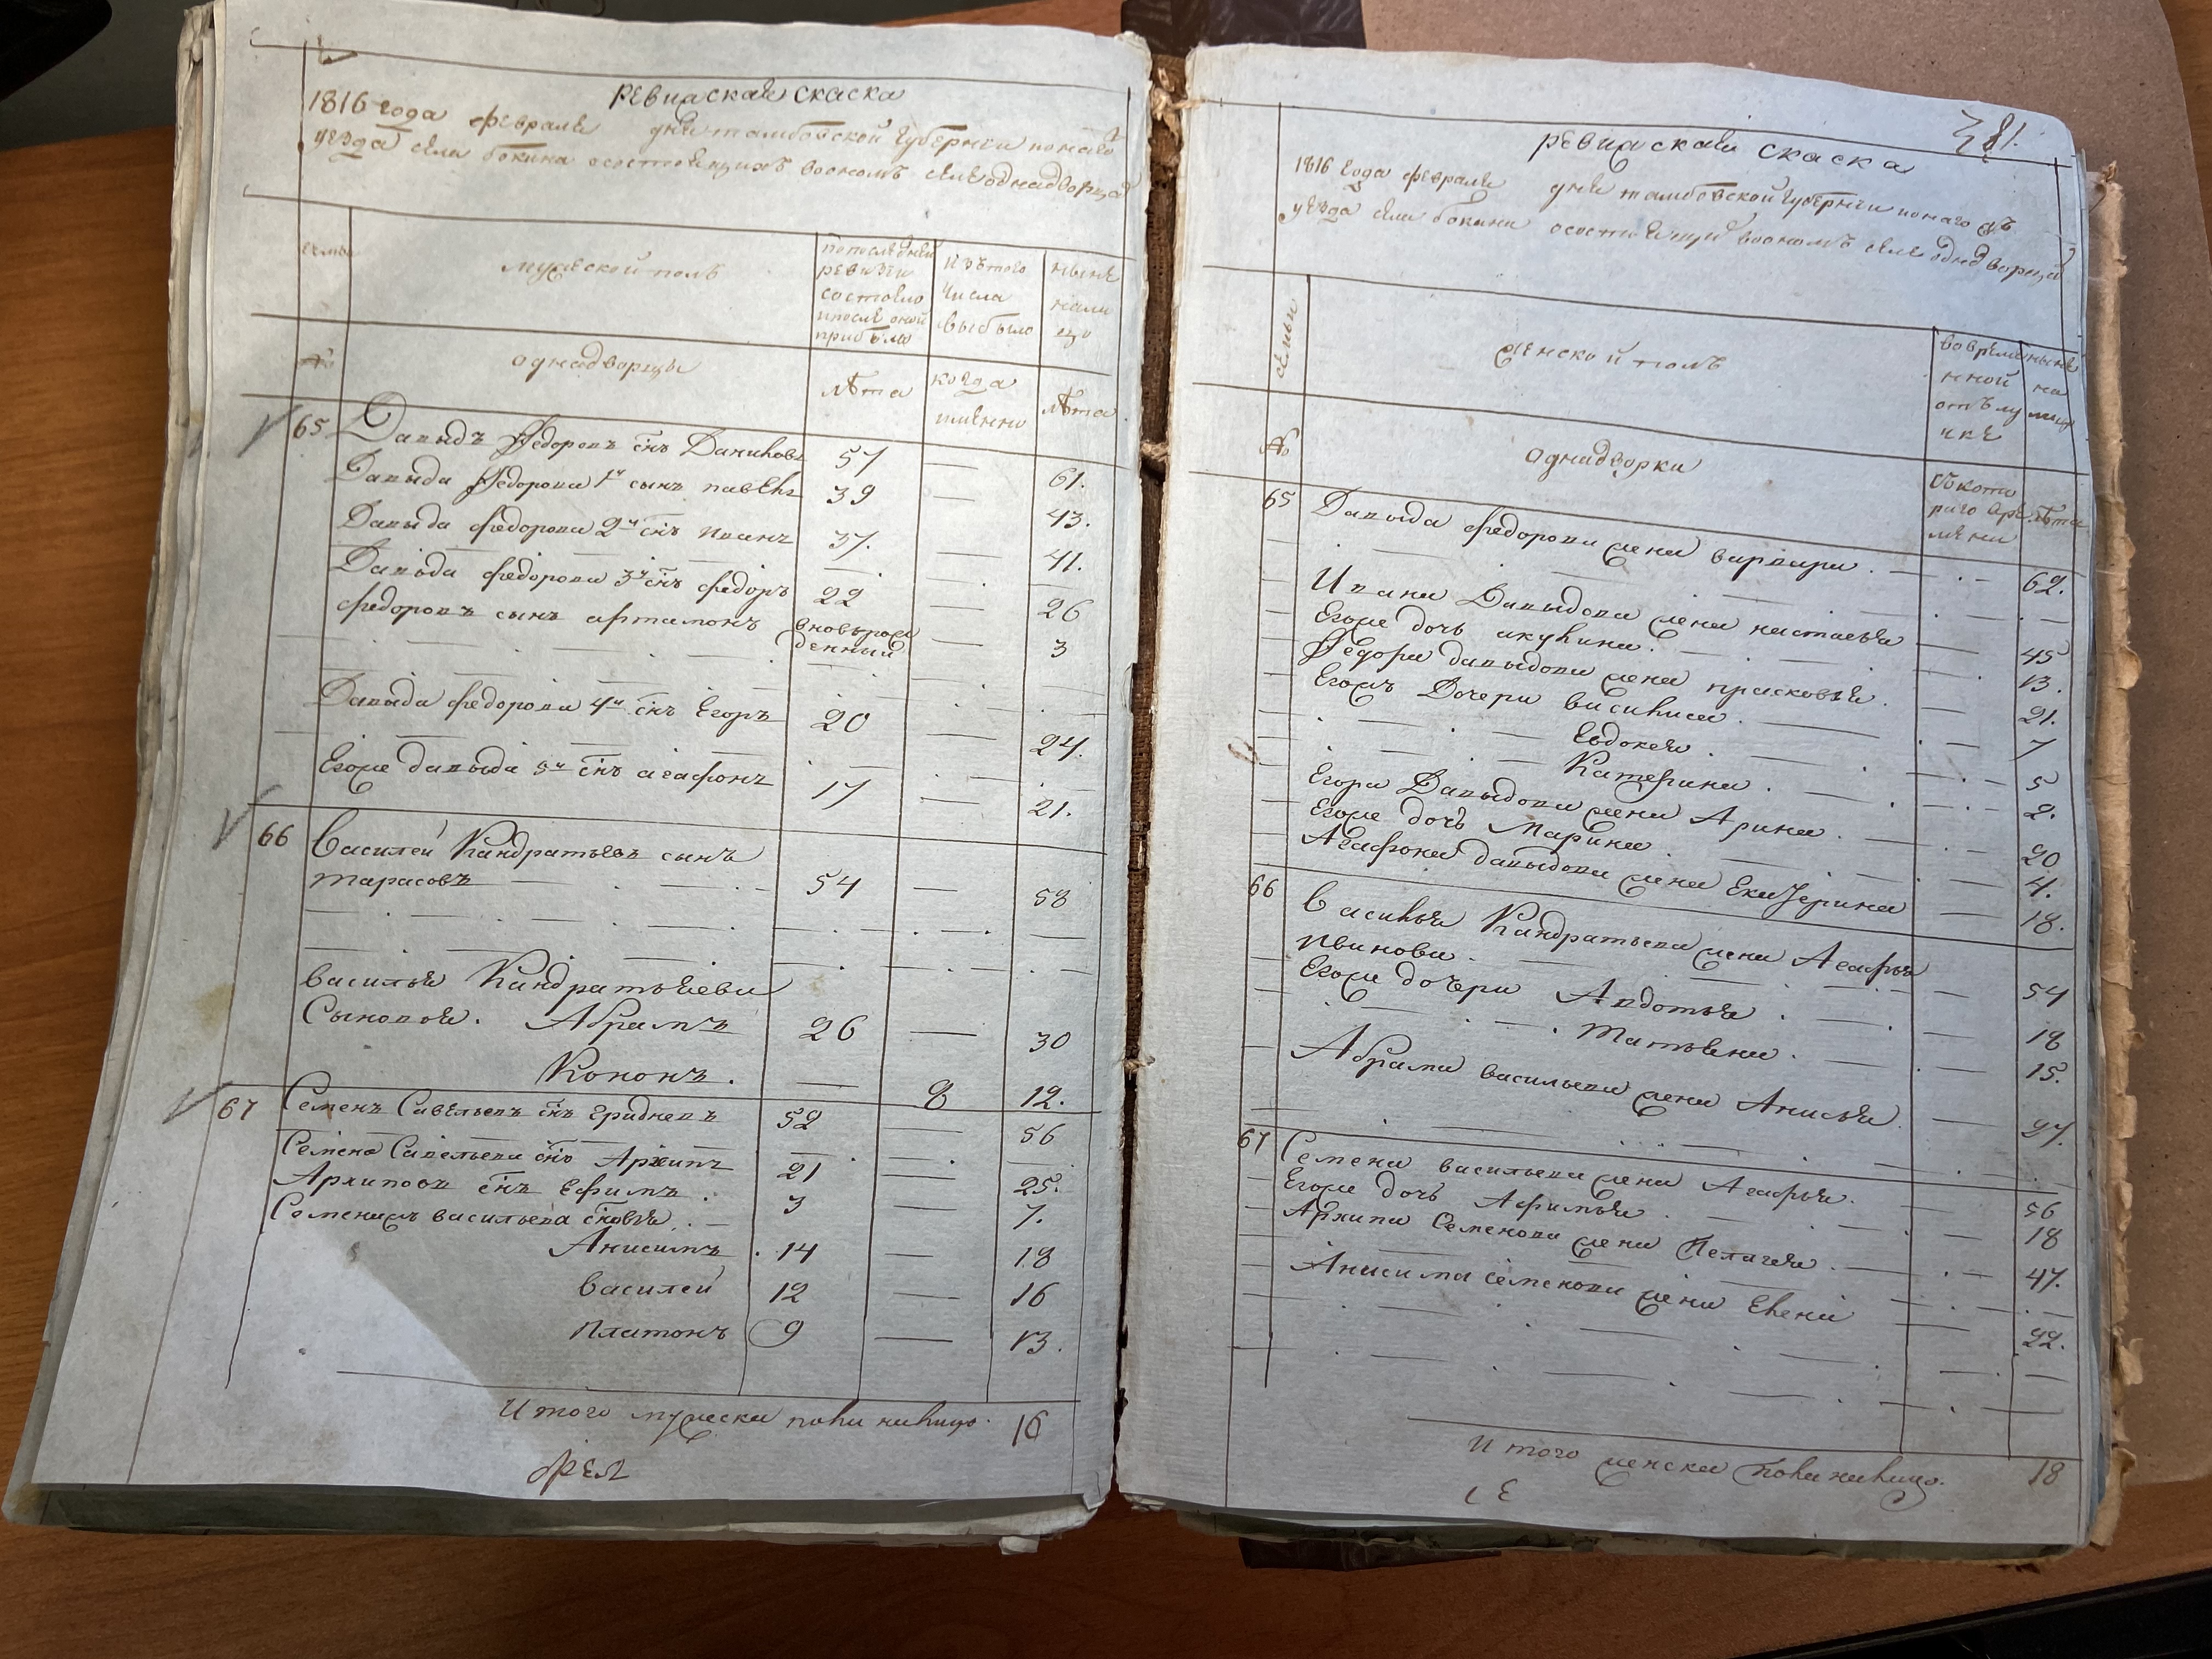 ревизская скаска
1816 года февраля дня тамбовской губернии
уезда села бокина осостоящихъ воономъ селе однадворца
семьи
мужеской полъ
попоследней
ревизии
состояло
ипосле оной
прибыло
изътого
числа
выбыло
ныне
нали
цо
№
однадворцы
лѣта
когда
имянно
лѣта
65 Давыдъ Федоровъ снъ Даниловъ 57 — 61.
Давыда Федорова 1й сынъ павелъ 39 — 43.
Давыда федорова 2й снъ иванъ 37. — 41.
Давыда федорова 3й снъ федоръ 22 — 26
федоровъ сынъ артамонъ вновьрож
денный — 3
Давыда федорова 4й снъ Егоръ 20 — 24.
Егоже давыда 5й снъ агафонъ 17 — 21.
66 Василей Кандратьевъ сынъ
тарасовъ 54 — 58
василья Кандратьева
Сыновья. Абрамъ 26 — 30
Кононъ. — 8 12.
67 Семенъ Савельевъ снъ гридневъ 52 — 56
Семена Савельева снъ Архипъ 21 — 25.
Архиповъ снъ Ефимъ. 3 7.
Семенажъ васильева сновья
Анисимъ 14 — 18
василей 12 — 16
платонъ 9 — 13.
Итого мужеска пола налицо. 16
381.
ревизская скаска
1816 года февраля дня тамбовской губернии
уезда села бокина осостоящи воономъ селе однадворца
семьи
женской полъ
вовреме
нной
отълу
чке
ныне
на
лицо
№
однадворки
съкото
раго вре
мени
лѣта
65 Давыда федорова жена варвара. 62.
Ивана Давыдова жена настасья 45
Егоже дочь акулина. 13.
Федора давыдова жена прасковья. 21.
Егожъ Дочери василиса. 7
Евдокея. 5
Катерина. 2.
Егора Давыдова жена Арина. 20
Егоже дочь Марина. 4.
Агафона давыдова жена Екатерина 18.
66 Василья Кандратьева жена Агафья
иванова. 54
Егоже дочери Авдотья. 18
Татьяна. 15.
Абрама васильева жена Анисья. 27.
67 Семена васильева жена Агафья. 56
Егоже дочь Афимья. 18
Архипа Семенова жена Пелагея. 47.
Анисима семенова жена Елена 22.
Итого женска пола налицо. 18